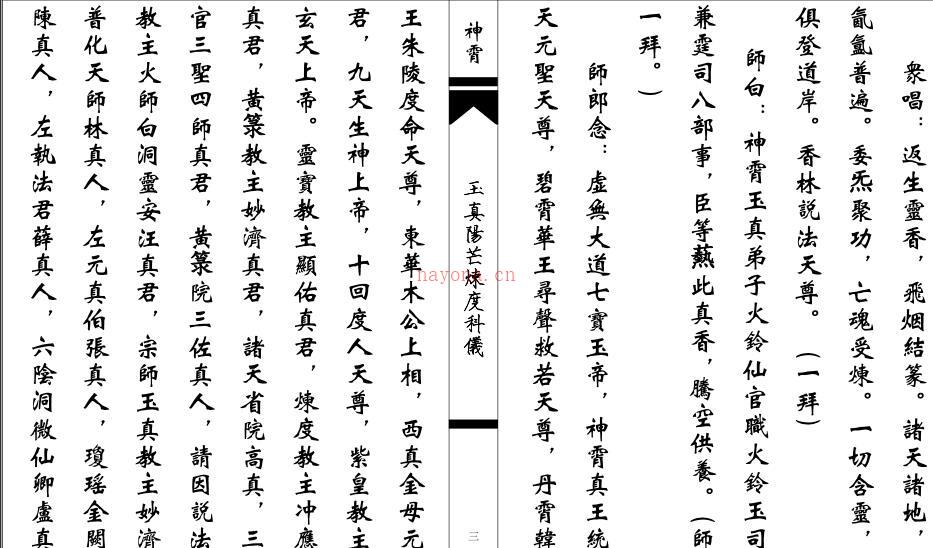 衆唱：返生靈香，飛烟結篆。諸天諸地，
氤氳普遍。委炁聚功，亡魂受煉。一切含靈，
俱登道岸。香林説法天尊。（一拜）
師白：神霄玉真弟子火鈴仙官職火鈴玉司
兼霆司八部事，臣等爇此真香，騰空供養。（師
一拜。）
師郎念：虛無大道七寶玉帝，神霄真王統
天元聖天尊，碧霄華王尋聲救若天尊，丹霄韓
神霄
玉真陽芒煉度科儀
三
nayona.cn
王朱陵度命天尊，東華木公上相，西真金母元
君，九天生神上帝，十回度人天尊，紫皇教主
玄天上帝。靈寶教主顯佑真君，煉度教主冲應
真君，黃籙教主妙濟真君，諸天省院高真，三
官三聖四師真君，黃籙院三佐真人，請因説法
教主火師白洞靈安汪真君，宗師玉真教主妙濟
普化天師林真人，左元真伯張真人，瓊瑶金闕
陳真人，左執法君薛真人，六陰洞微仙卿盧真